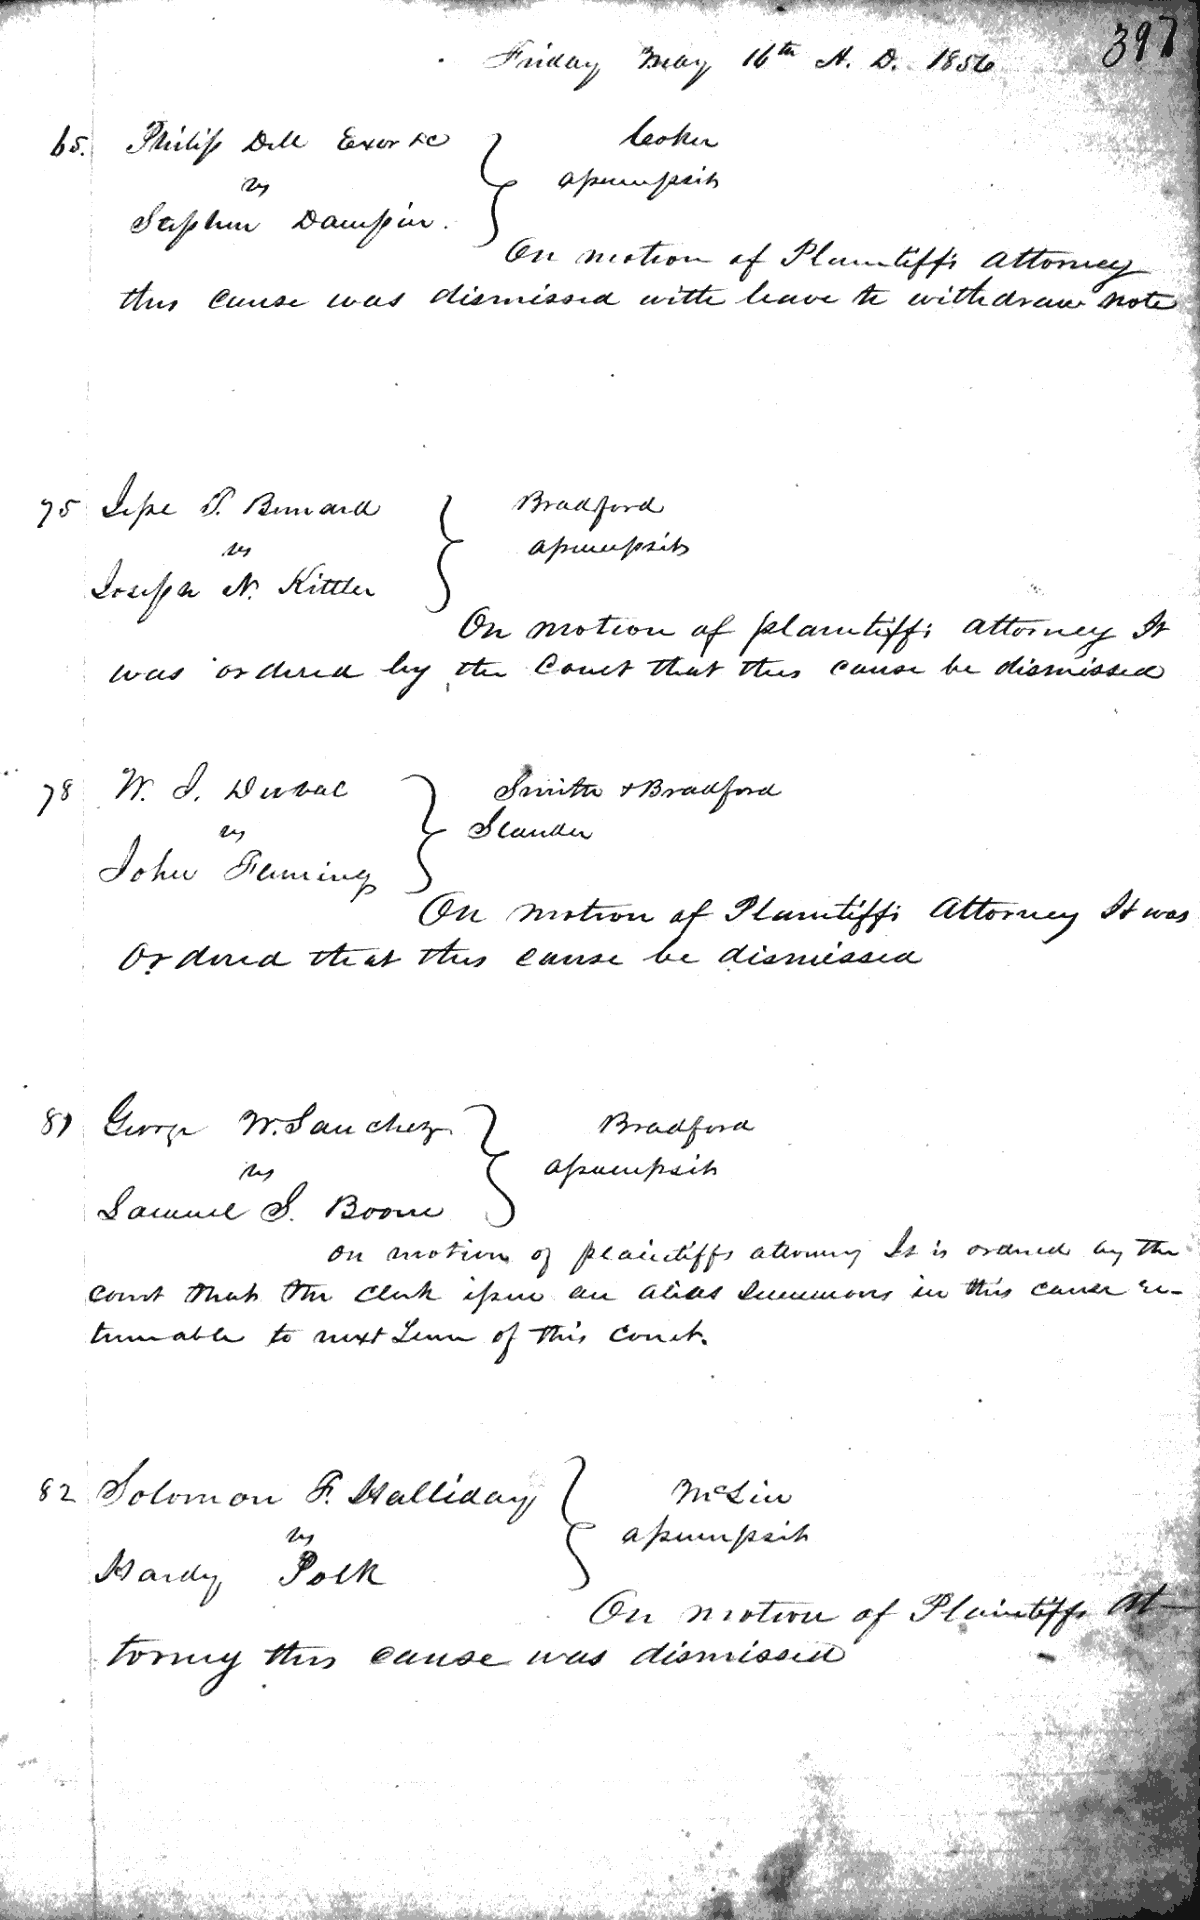 397
Friday May 16th A. D. 1856
65. Philip Dell Exor &c Coker
vs assumpsit
Stephen Dampier.
On motion of Plaintiffs attorney
this cause was dismissed with leave to withdraw note
75 Jesse T. Bernard Bradford
vs assumpsit
Joseph N. Kittler
On motion of plaintiffs attorney It
was ordered by the Court that this cause be dismissed
78 W. J. Duval Smith & Bradford
vs Slander
John Fleming
On motion of Plaintiffs Attorney It was
Ordered that this cause be dismissed
81 George W. Sanchez Bradford
vs assumpsit
Samuel S. Boone
on motion of plaintiffs attorney It is ordered by the
court that the clerk issue an alias summons in this cause re-
turnable to next Term of this court.
82 Solomon F. Halliday McLin
vs assumpsit
Hardy Polk
On motion of Plaintiffs At-
torney this cause was dismissed